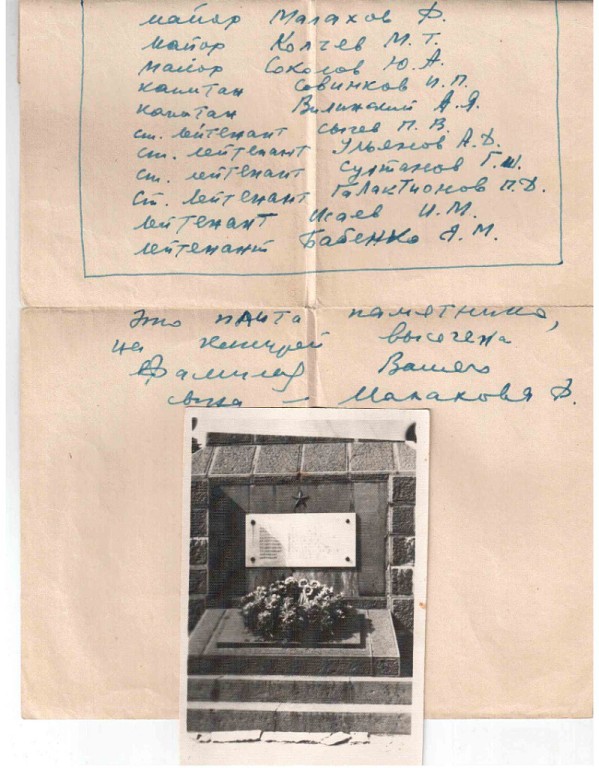 майор Малахов Ф.
майор Колчев М. Т.
майор Соколов Ю. А.
капитан Совинков И. П.
капитан Вилинский А. Я.
ст. лейтенант Сычев П. В.
ст. лейтенант Ульянов А. Д.
ст. лейтенант Султанов Г. Ш.
ст. лейтенант Галактионов П. Д.
лейтенант Исаев И. М.
лейтенант Бабенко А. М.
Это плита памятника,
на которой высечена
фамилия Вашего
сына – Малахова Ф.